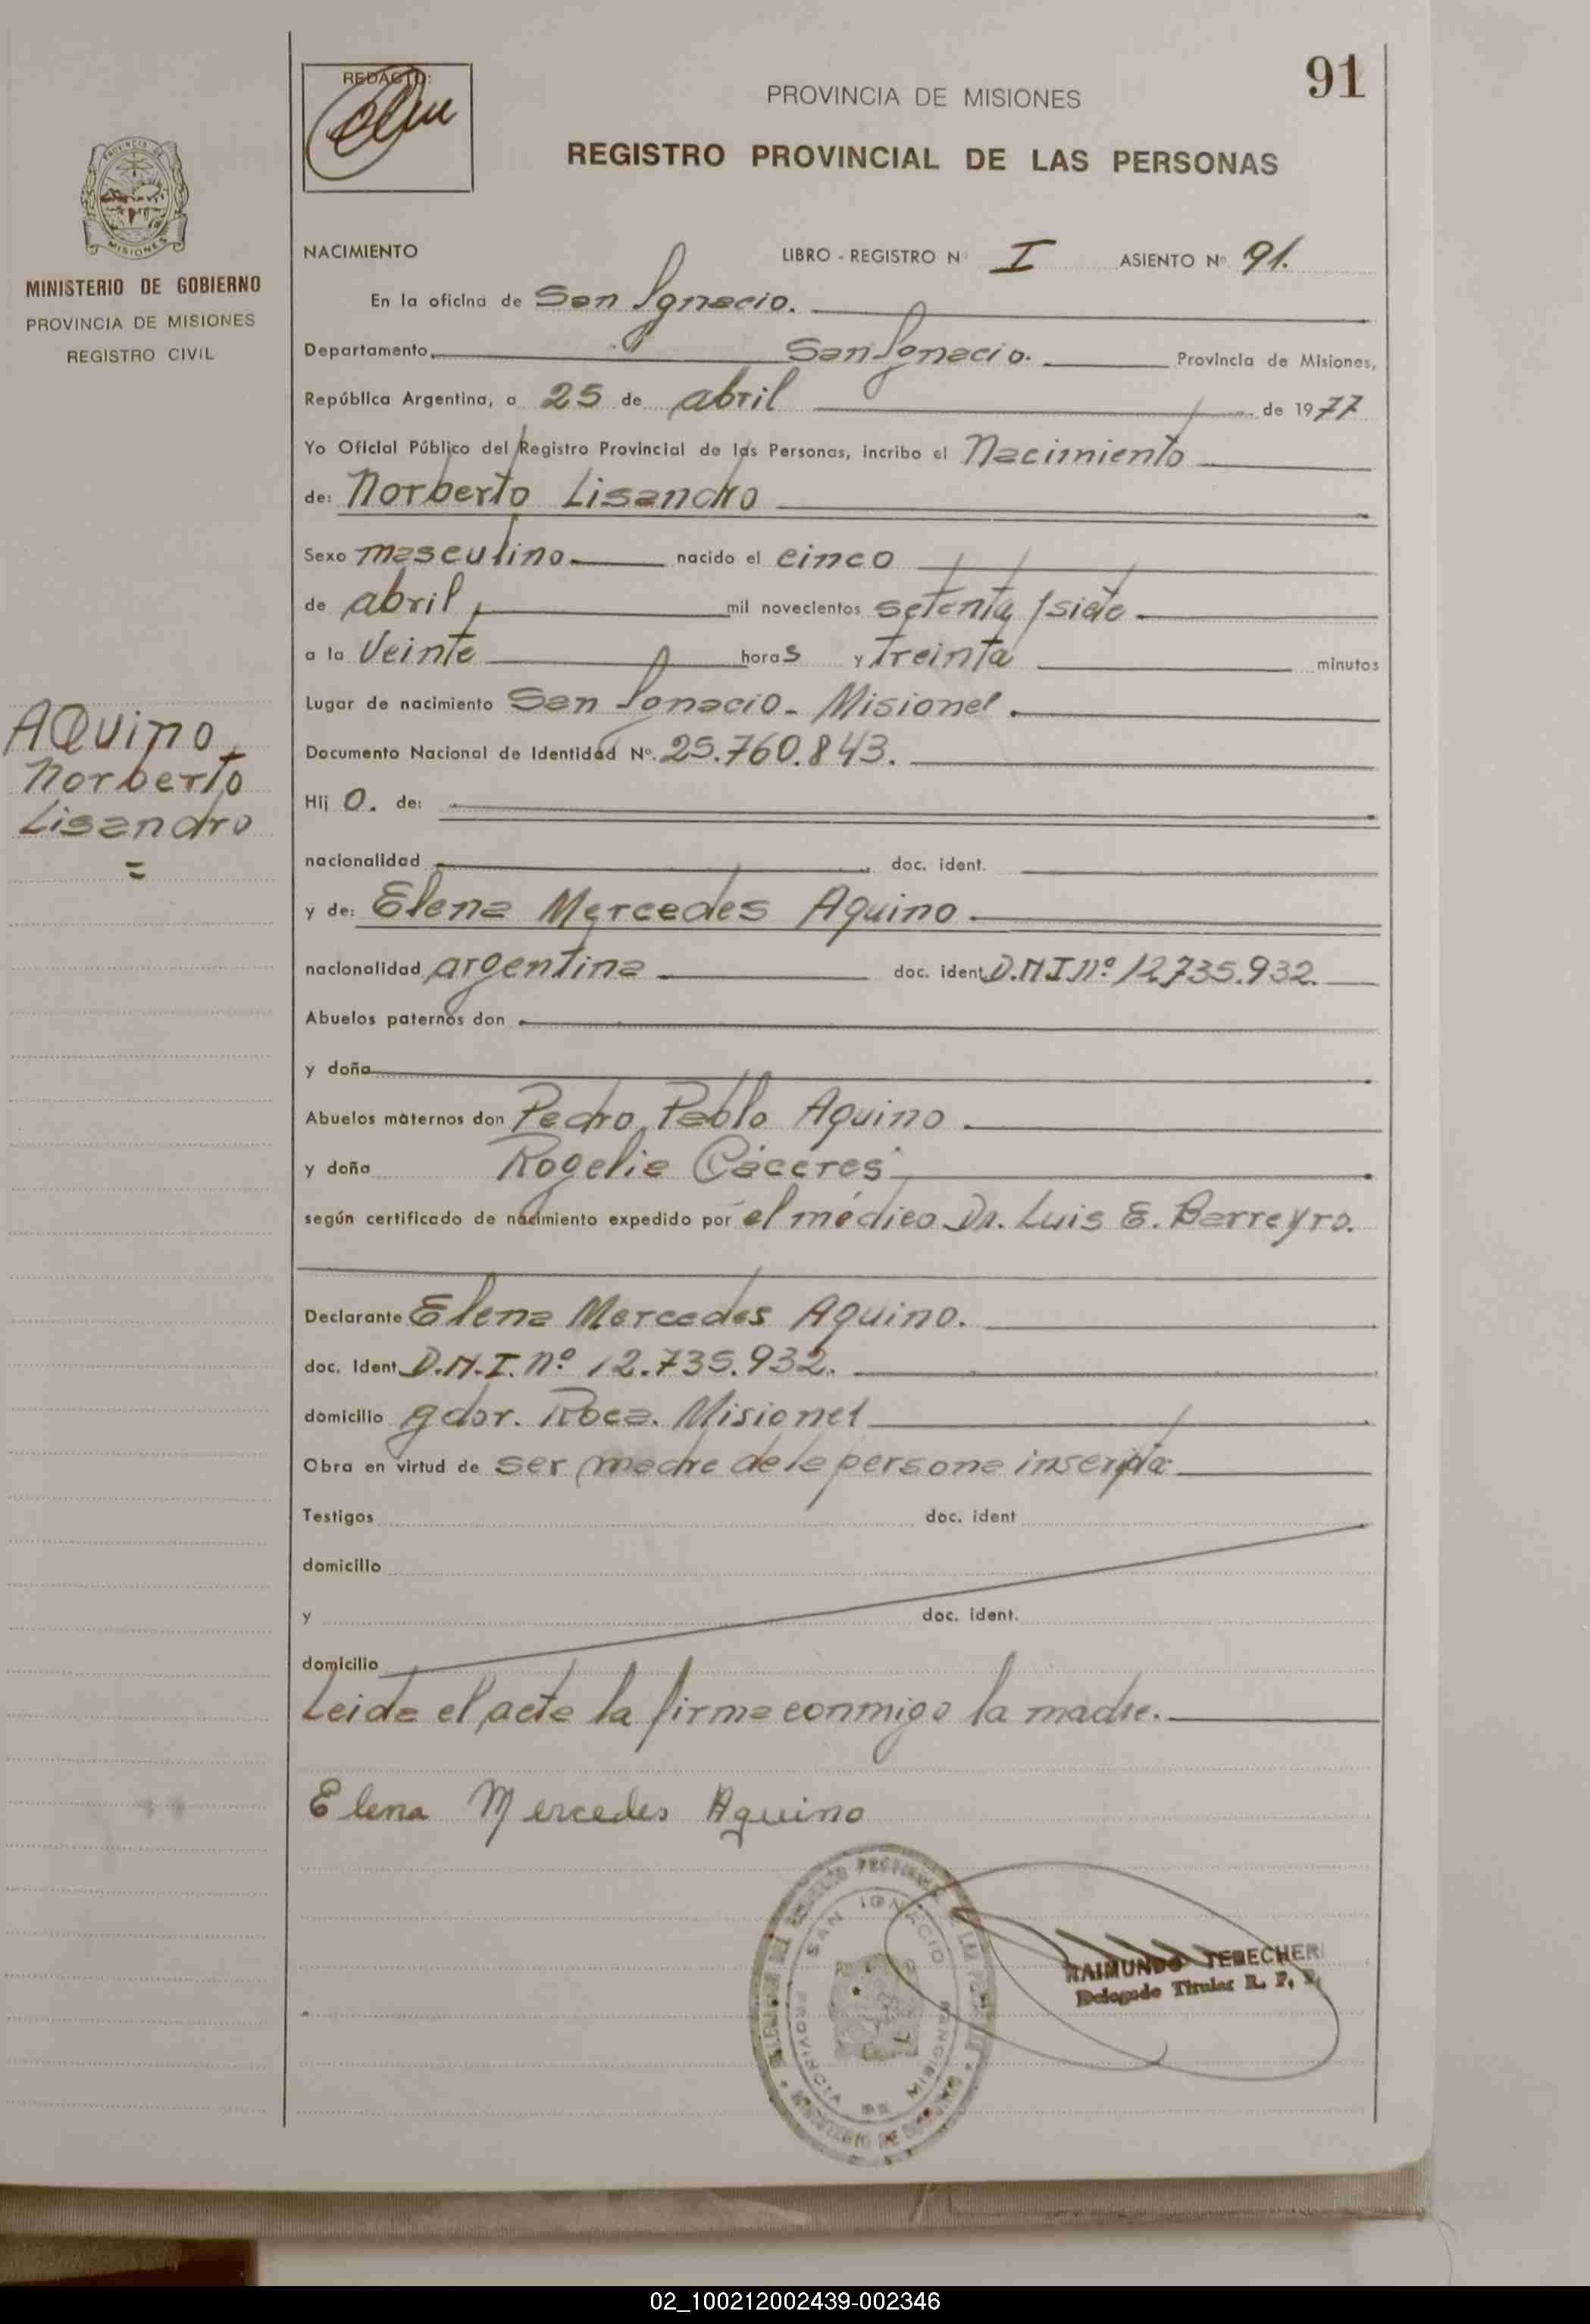 91
REDACTO:
PROVINCIA DE MISIONES
REGISTRO PROVINCIAL DE LAS PERSONAS
PROVINCIA DE
MISIONES
MINISTERIO DE GOBIERNO
PROVINCIA DE MISIONES
REGISTRO CIVIL
AQuino
Norberto
Lisandro
=
NACIMIENTO LIBRO - REGISTRO Nº I ASIENTO Nº 91.
En la oficina de San Ignacio.
Departamento San Ignacio. Provincia de Misiones,
República Argentina, a 25 de abril de 1977
Yo Oficial Público del Registro Provincial de las Personas, incribo el Nacimiento
de: Norberto Lisandro
Sexo masculino nacido el cinco
de abril, mil novecientos setenta y siete
a la Veinte horas y Treinta minutos
Lugar de nacimiento San Ignacio - Misiones.
Documento Nacional de Identidad Nº. 25.760.843.
Hij o. de:
nacionalidad doc. ident.
y de: Elena Mercedes Aquino.
nacionalidad argentina doc. ident D.N.I nº 12.735.932.
Abuelos paternos don
y doña
Abuelos maternos don Pedro Pablo Aquino
y doña Rogelia Cáceres
según certificado de nacimiento expedido por el médico Dr. Luis E. Barreyro.
Declarante Elena Mercedes Aquino.
doc. Ident. D.N.I. nº 12.735.932.
domicilio gdor. Roca. Misiones
Obra en virtud de ser madre de la persona inscripta
Testigos doc. ident
domicilio
y doc. ident.
domicilio
Leida el acta la firma conmigo la madre.
Elena Mercedes Aquino
SAN IGNACIO
PROVINCIA DE MISIONES
RAIMUNDO TEBECHERI
Delegado Titular R. P. P.
02_100212002439-002346